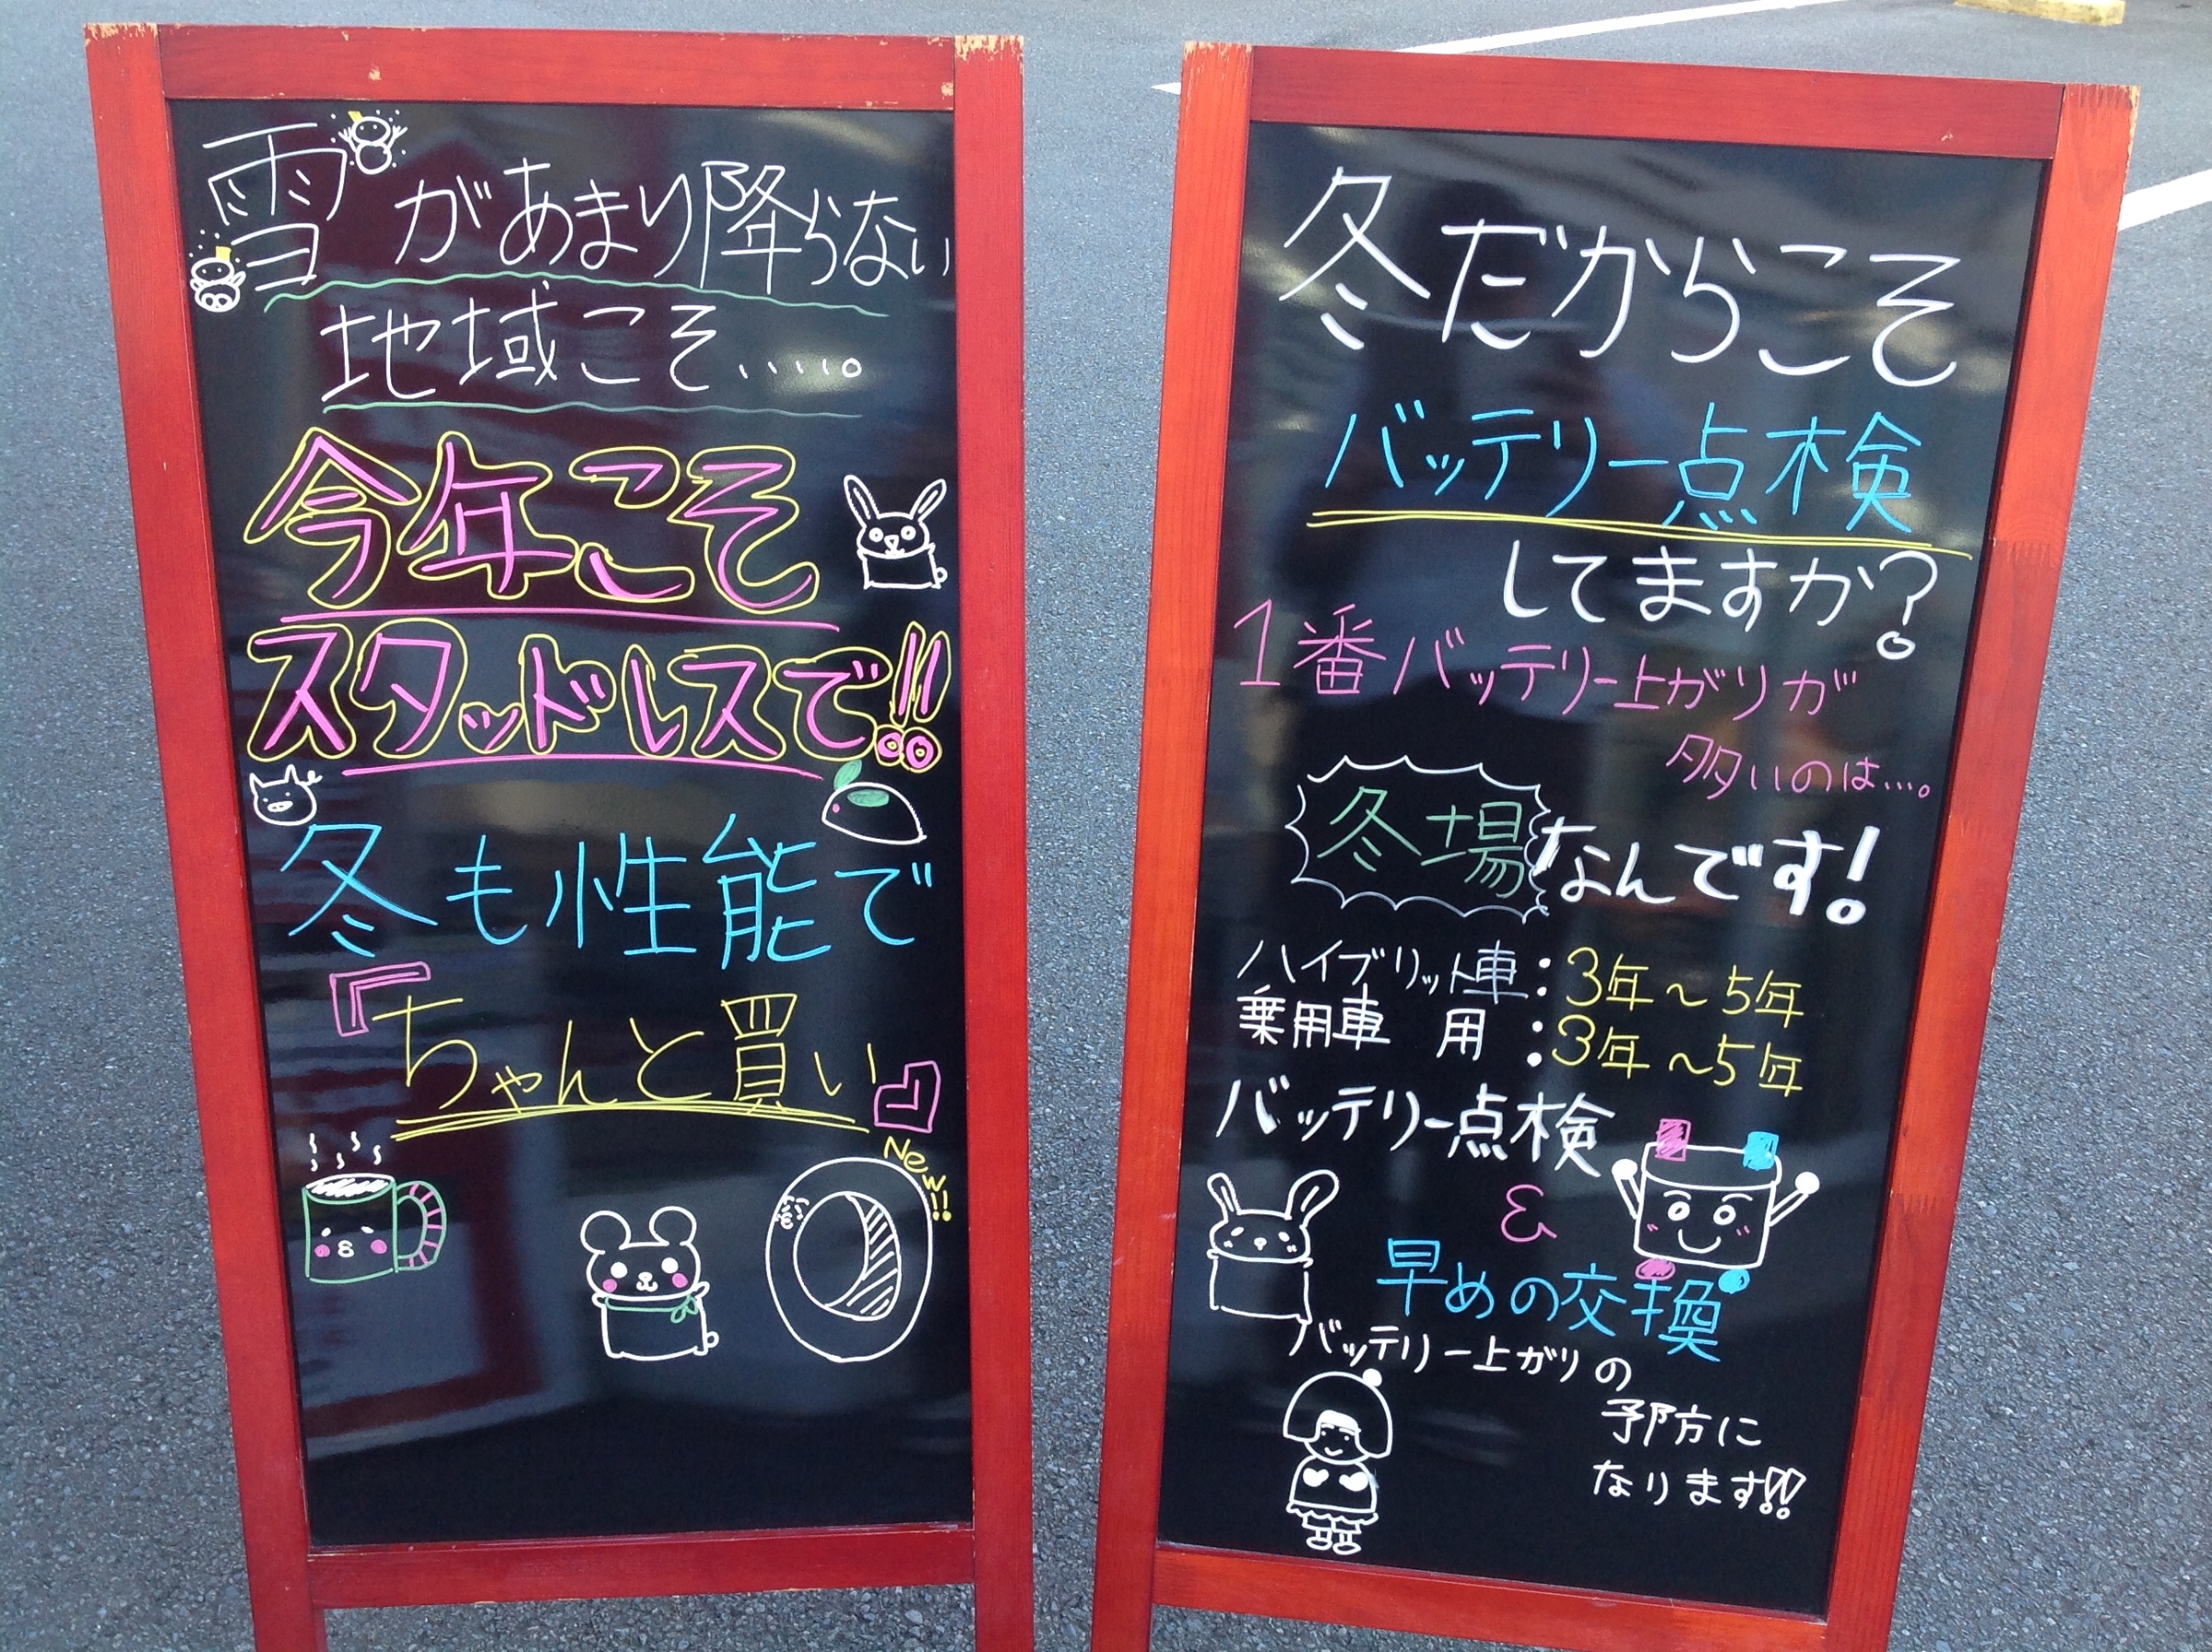 雪があまり降らない
地域こそ.....。
今年こそ
スタッドレスで!!
冬も性能で
『ちゃんと買い』
New!!
冬だからこそ
バッテリー点検
してますか?
1番バッテリー上がりが
多いのは....。
冬場なんです!
ハイブリット車:3年~5年
乗用車 用:3年~5年
バッテリー点検
&
早めの交換
バッテリー上がりの
予防に
なります!!